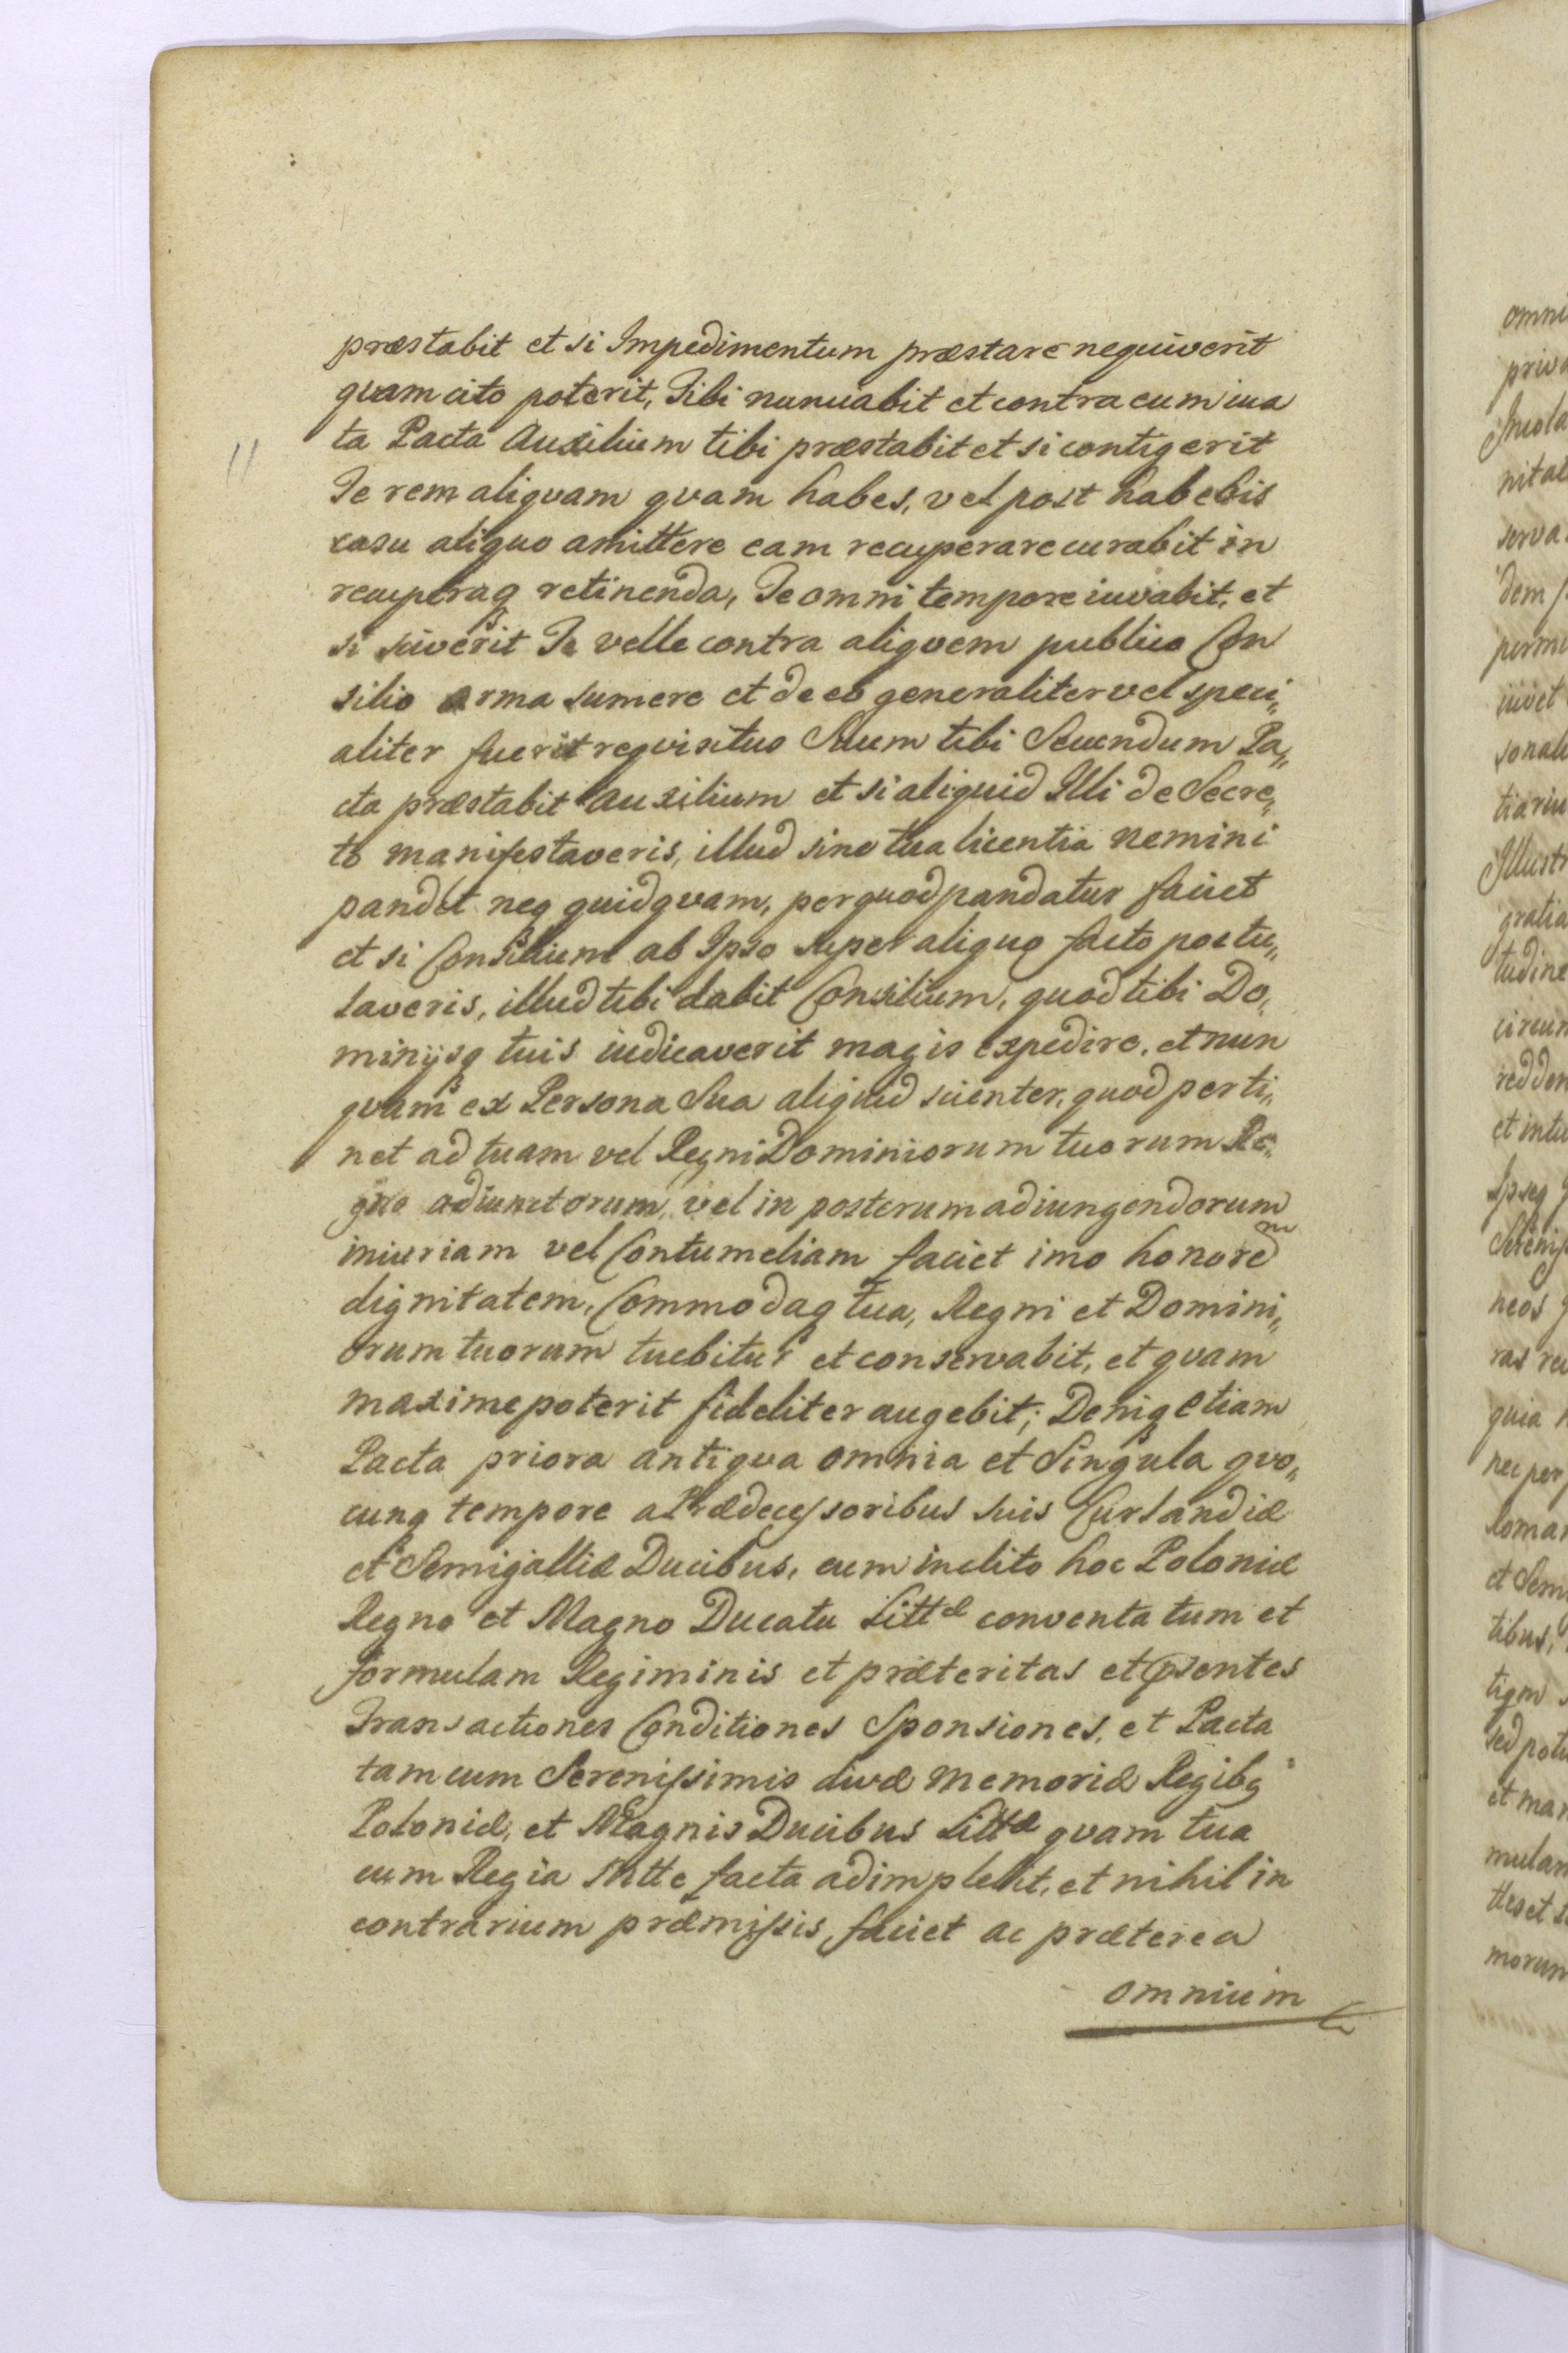 præstabit et si Impedimentum præstare nequiverit
quam cito poterit, Tibi nunciabit et contra eum iux
ta Pacta Auxilium tibi præstabit et si contigerit
Te rem aliquam quam habes, vel post habebis
casu aliquo amittere eam recuperare curabit in
recuperaq retinenda, Te omni tempore iuvabit, et
si sciverit Te velle contra aliquem publico Con
silio arma sumere et de eo generaliter vel speci„
aliter fuerit requisitus Suum tibi Secundum Pa„
cta præstabit auxilium et si aliquid Illi de Secre„
to manifestaveris, illud sine tua licentia nemini
pandet neq quidquam, per quod pandatur faciet
et si Consilium ab Ipso super aliquo facto postu„
laveris, illud tibi dabit Consilium, quod tibi Do„
minijsq tuis iudicaverit magis expedire, et nun
quam ex Persona Sua aliquid scienter, quod perti„
net ad tuam vel Regni Dominiorum tuorum Re„
gno adiunctorum, vel in posterum adiungendorum
iniuriam vel Contumeliam faciet imo honorem
dignitatem, Commodaq tua, Regni et Domini„
orum tuorum tuebitur et conservabit, et quam
maxime poterit fideliter augebit; Deniq etiam
Pacta priora antiqua omnia et Singula quo„
cunq tempore a Prædecessoribus suis Curlandiæ
et Semigalliæ Ducibus, cum inclito hoc Poloniæ
Regno et Magno Ducatu Littæ conventa tum et
formulam Regiminis et præteritas et psentes
Transactiones Conditiones Sponsiones, et Pacta
tam cum Serenissimis divæ memoriæ Regibq
Poloniæ, et Magnis Ducibus Littæ quam tua
cum Regia Mtte facta adimplebit, et nihil in
contrarium præmissis faciet ac præterea
omnium